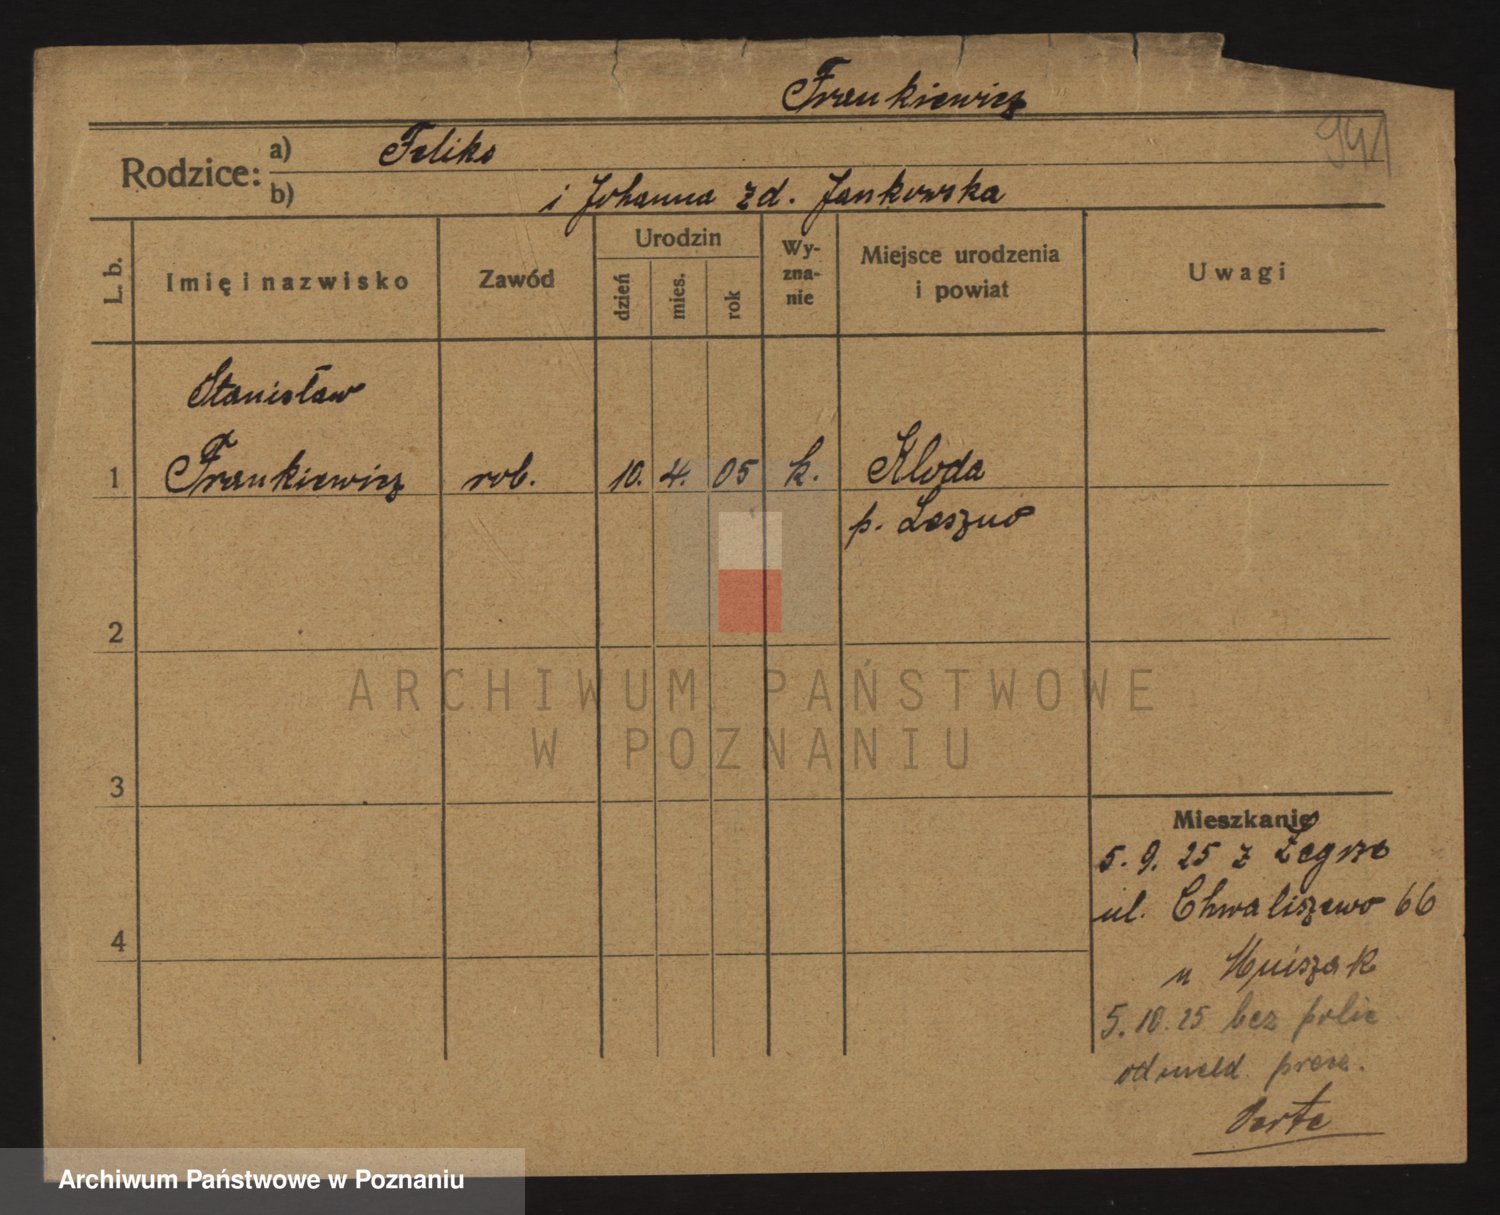 Frankiewicz
941
Rodzice:
a) Feliks
b) i Johanna zd. Jankowska
L. b.
Imię i nazwisko
Zawód
Urodzin
dzień
mies.
rok
Wy-
zna-
nie
Miejsce urodzenia
i powiat
Uwagi
Stanisław
1 Frankiewicz rob. 10. 4. 05 k. Kloda
p. Leszno
2
3
4
Mieszkanie
5. 9. 25 z Żegrze
ul. Chwaliszewo 66
u
5. 10. 25 bez polic
odmeld. przez.
ARCHIWUM PAŃSTWOWE
W POZNANIU
Archiwum Państwowe w Poznaniu